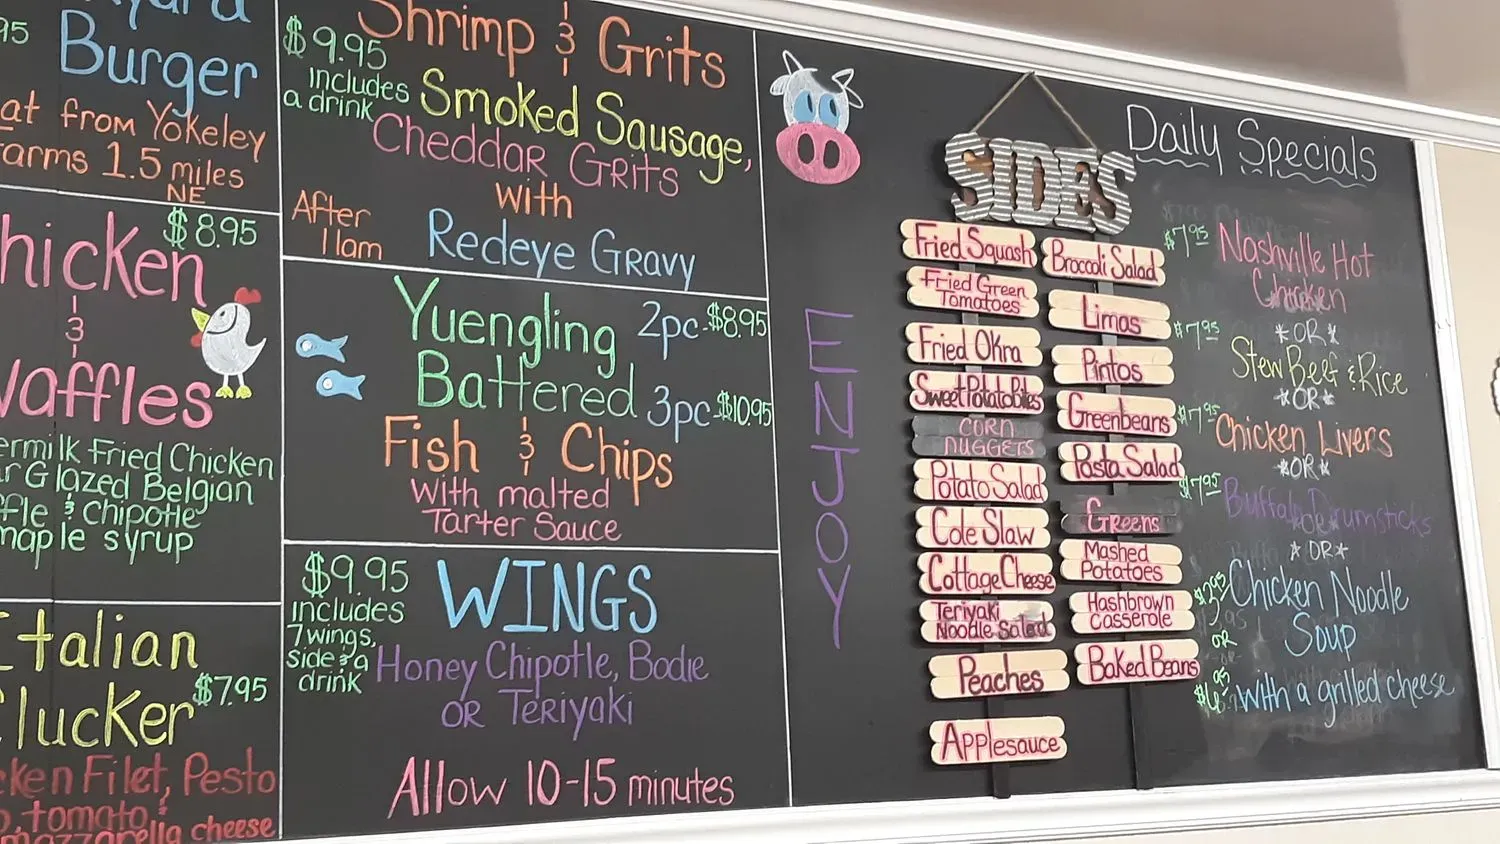 Burger
at from Yokeley
arms 1.5 miles
NE
$8.95
hicken
&
affles
ermilk Fried Chicken
r Glazed Belgian
ffle & chipotle
maple syrup
Italian
$7.95
lucker
cken Filet, Pesto
, tomato &
mozzarella cheese
Shrimp & Grits
$9.95
includes
a drink
Smoked Sausage,
Cheddar Grits
with
After
11am
Redeye Gravy
Yuengling
2pc $8.95
Battered
3pc $10.95
Fish & Chips
with malted
Tarter Sauce
$9.95
includes
7 wings,
side & a
drink
WINGS
Honey Chipotle, Bodie
or Teriyaki
Allow 10-15 minutes
ENJOY
SIDES
Fried Squash
Fried Green
Tomatoes
Fried Okra
Sweet Potato Bites
CORN
NUGGETS
Potato Salad
Cole Slaw
Cottage Cheese
Teriyaki
Noodle Salad
Peaches
Applesauce
Broccoli Salad
Limas
Pintos
Greenbeans
Pasta Salad
Greens
Mashed
Potatoes
Hashbrown
Casserole
Baked Beans
Daily Specials
$7.95 Nashville Hot
Chicken
*OR*
$7.95 Stew Beef & Rice
*OR*
$7.95 Chicken Livers
*OR*
$7.95 Buffalo Drumsticks
*OR*
Chicken Noodle
Soup
OR
with a grilled cheese